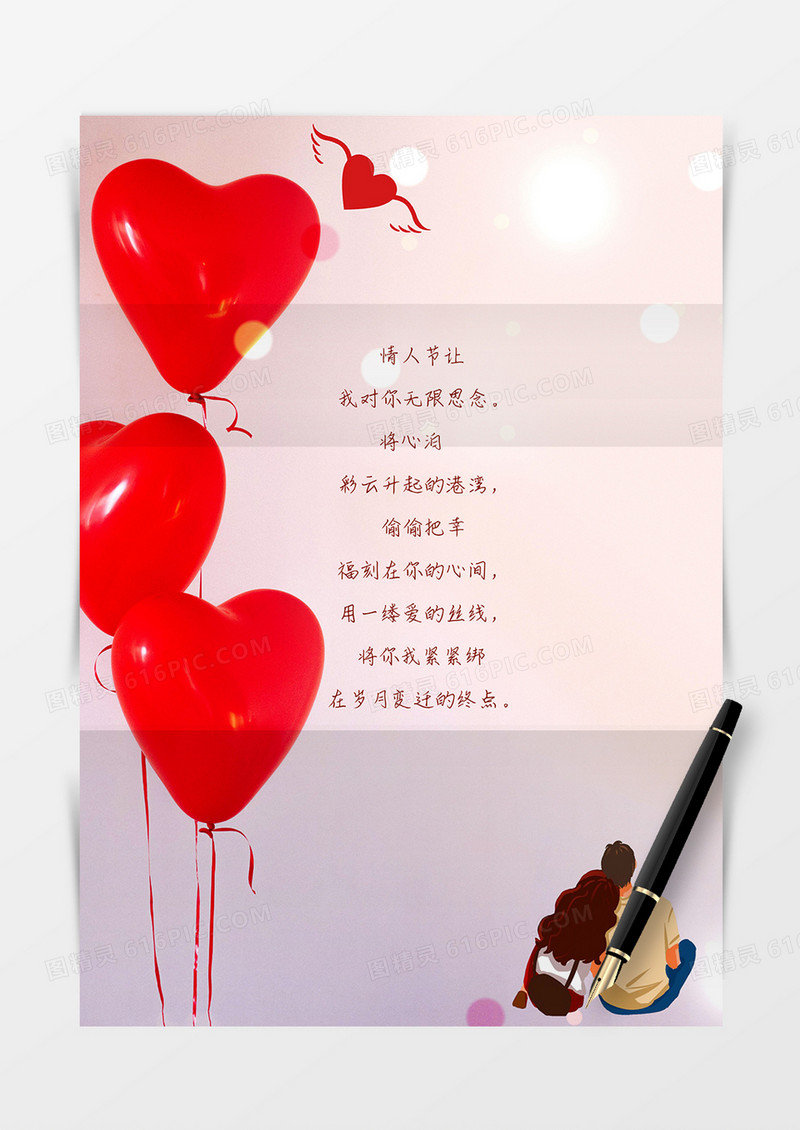 情人节让
我对你无限思念。
将心泊
彩云升起的港湾，
偷偷把幸
福刻在你的心间，
用一缕爱的丝线，
将你我紧紧绑
在岁月变迁的终点。
图精灵 616PIC.COM